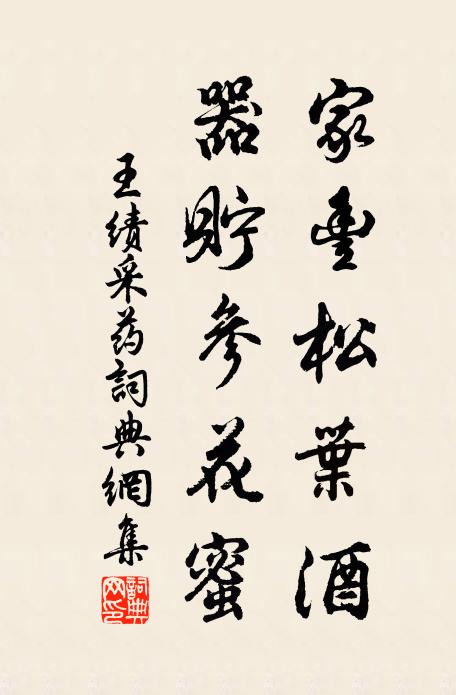 家豊松葉酒
器貯參花蜜
王績采药詞典網集
詞典网印